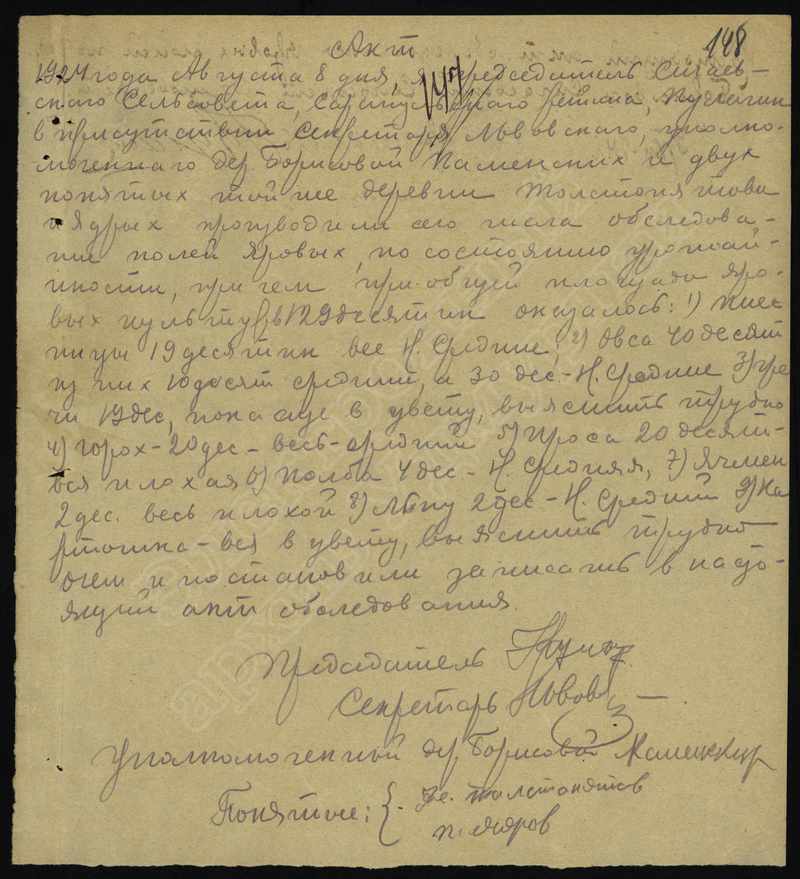 148
Акт
147
1924 года Августа 8 дня, я председатель Сигаев-
ского Сельсовета, Сарапульского района,
в присутствии секретаря Львовского, уполно-
моченного дер. Борисовой Каменских и двух
понятых той же деревни Толстопятова
и Ядрых производили сего числа обследова-
ние полей яровых, по состоянию урожай-
ности, при чем при общей площади яро-
вых культур в 129 десятин оказалось: 1) Пшес
ницы 19 десятин все Н. Средние, 2) Овса 40 десят
из них 10 десят средний, а 30 дес.- Н. Средние 3) гре
чи 12 дес, пока еще в цвету, выяснить трудно
4) горох - 20 дес - весь - средний 5) Проса 20 десят-
вся плохая 6) Полба 4 дес - Н Средняя, 7) Ячмен
2 дес. весь плохой 8) Льну 2 дес - Н. Средний 9) Ка
ртошка - вся в цвету, выяснить трудно
о чем и постановили записать в насто-
ящий акт обследования.
Председатель
Секретарь Львов
Уполномоченный дер. Борисовой Каменских
Понятые: { Толстопятов